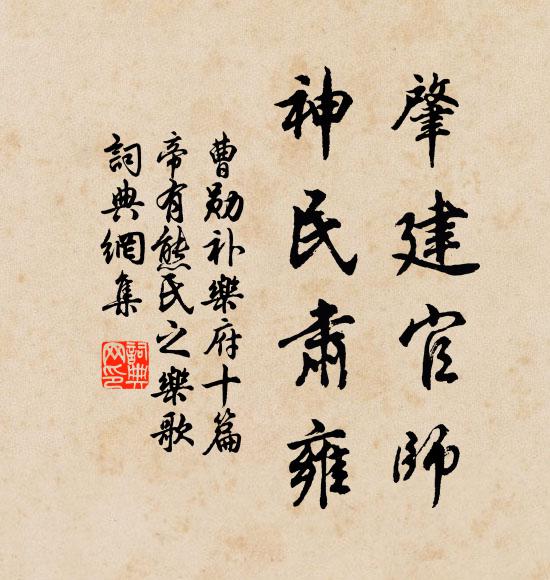 肇建官師
神民肅雍
曹勛补樂府十篇
帝有熊氏之樂歌
詞典網集
詞典網印